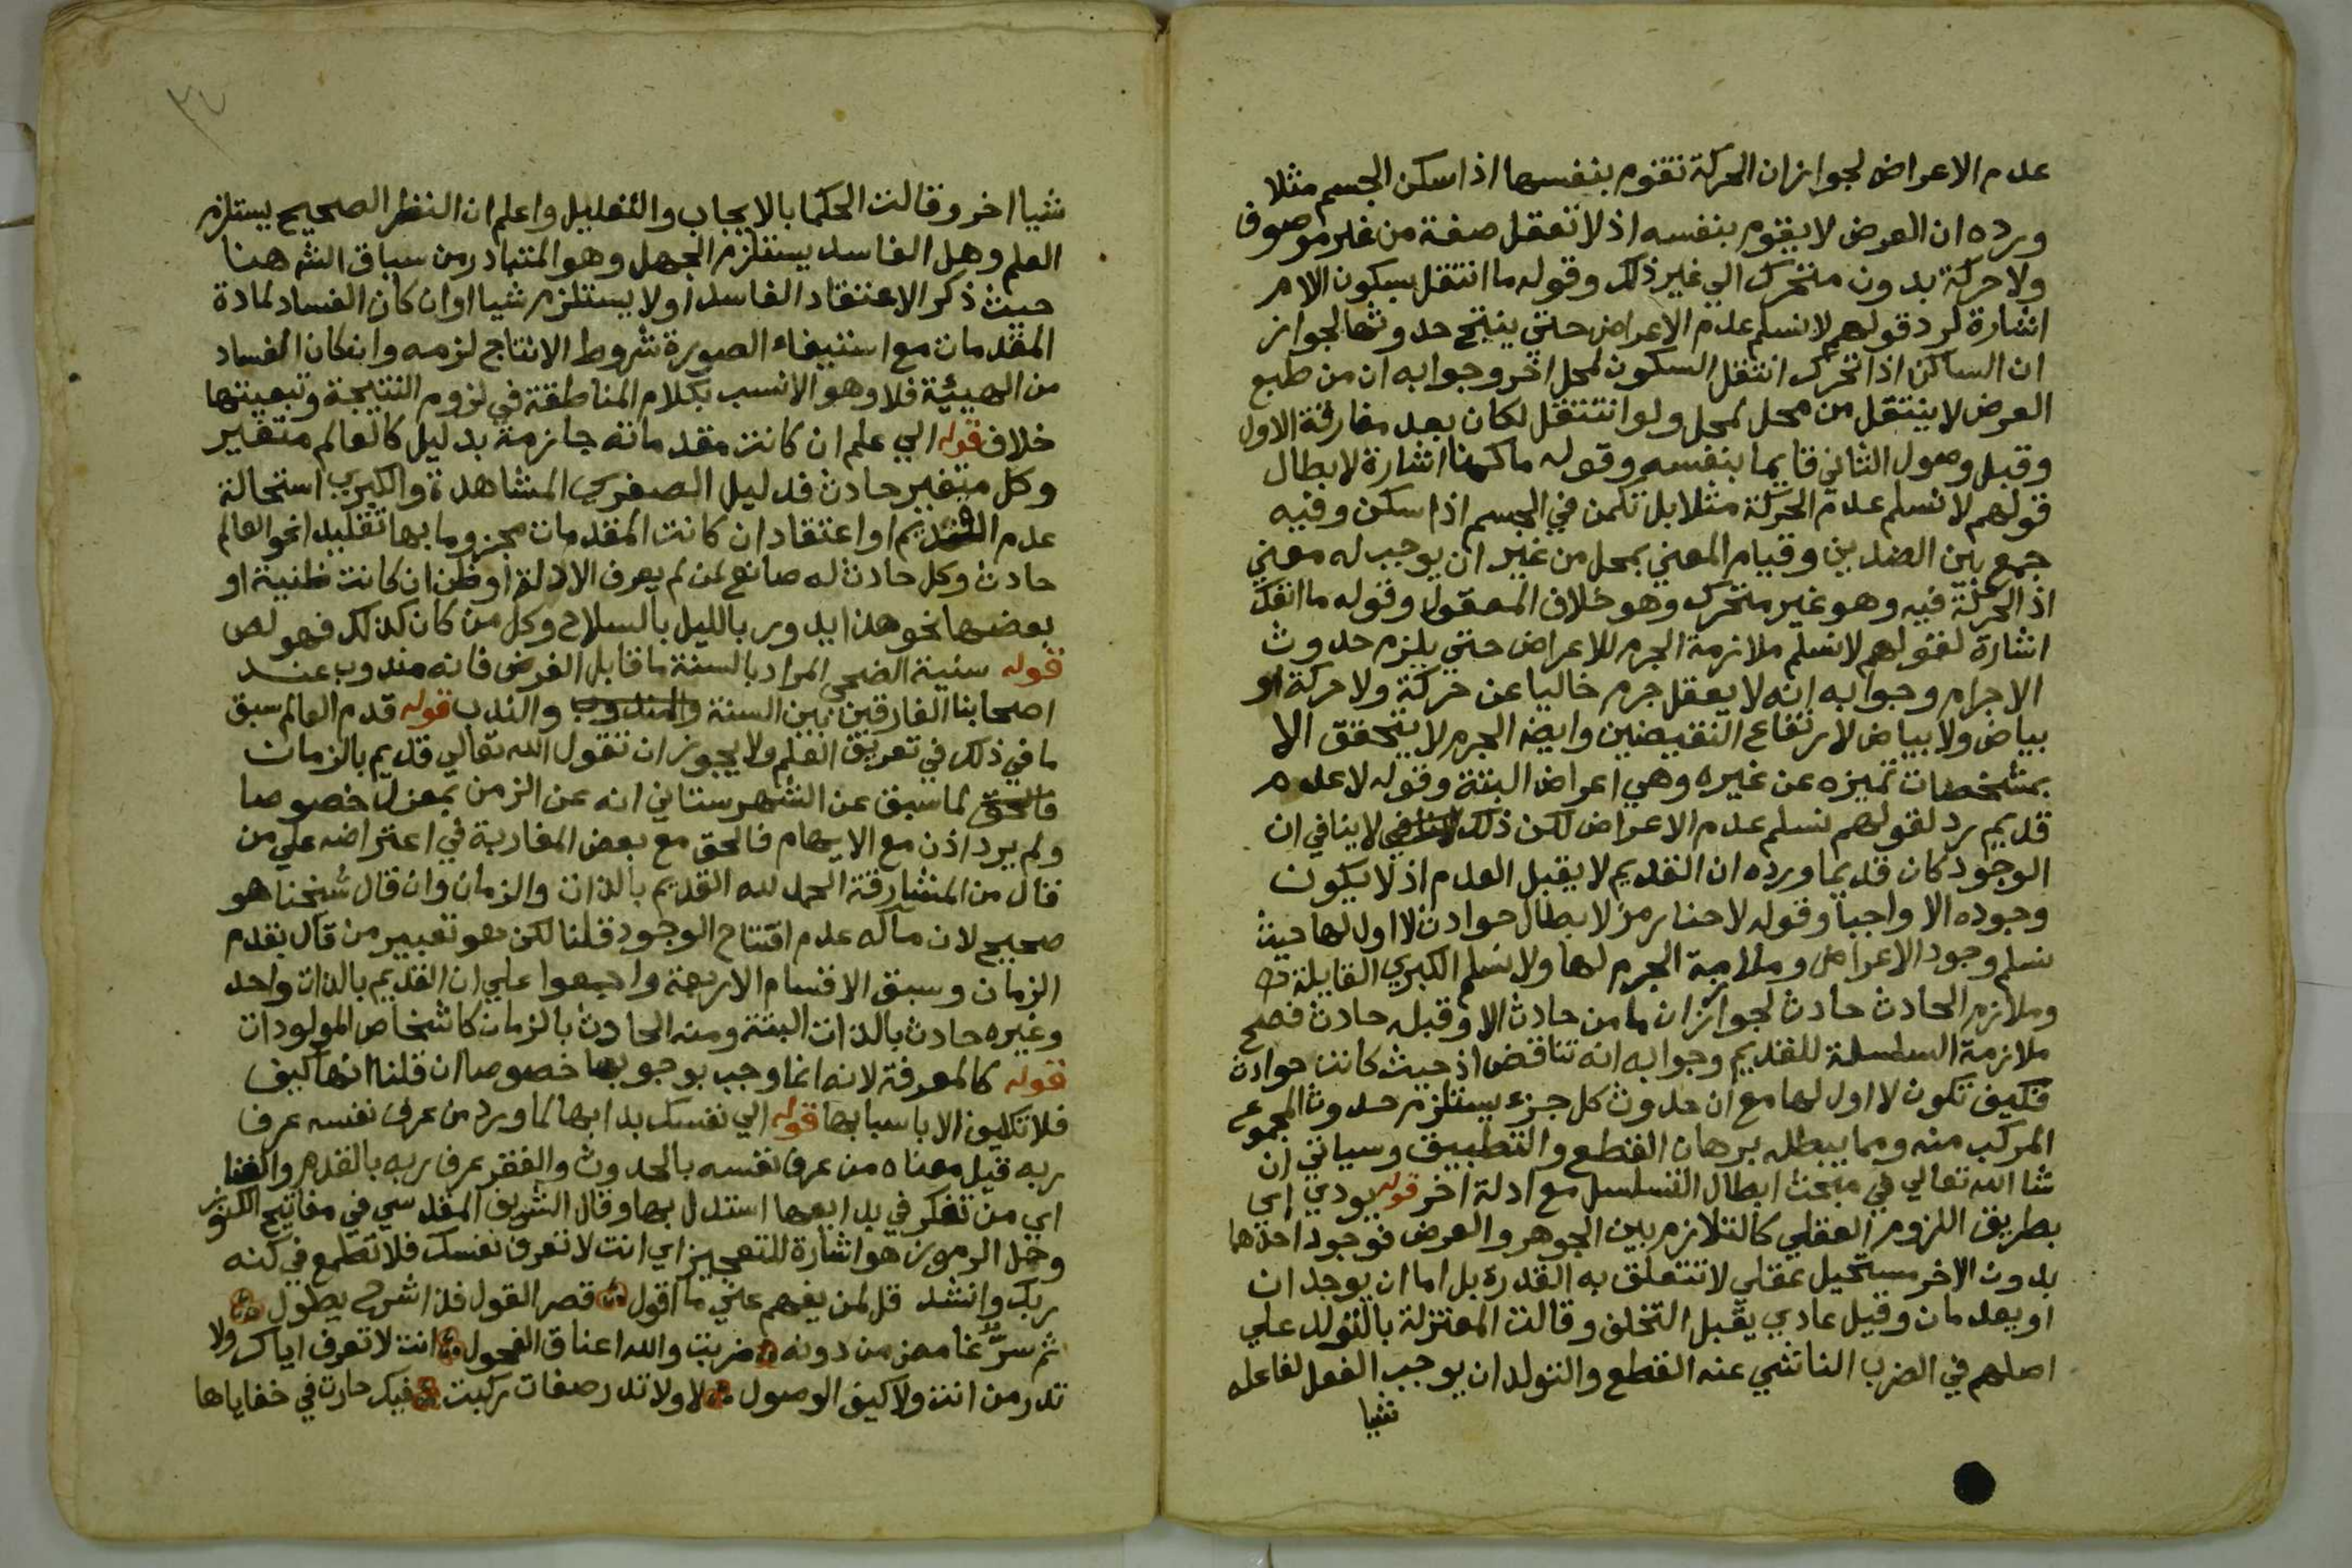 عدم الاعراض لجواز ان الحركة تقوم بنفسها اذا سكن الجسم مثلا
ورده ان العرض لا يقوم بنفسه اذ لا تعقل صفة من غير موصوف
ولا حركة بدون متحرك الي غير ذلك وقوله ما انتقل بسكون اللام
اشارة لرد قولهم لا نسلم عدم الاعراض حتي ينتج حدوثها لجواز
ان الساكن اذا تحرك انتقل السكون لمحل اخر وجوابه ان من طبع
العرض لا ينتقل من محل لمحل ولو انتقل لكان بعد مفارقة الاول
وقبل وصول الثاني قايما بنفسه وقوله ما كمنا اشارة لابطال
قولهم لا نسلم عدم الحركة مثلا بل تكمن في الجسم اذا سكن وفيه
جمع بين الضدين وقيام المعني بمحل من غير ان يوجب له معني
اذ الحركة فيه وهو غير متحرك وهو خلاف المعقول وقوله ما انفك
اشارة لقولهم لا نسلم ملازمة الجرم للاعراض حتي يلزم حدوث
الاجرام وجوابه انه لا يعقل جرم خاليا عن حركة ولا حركة او
بياض ولا بياض لارتفاع النقيضين وايضا الجرم لا يتحقق الا
بمشخصات تميزه عن غيره وهي اعراض البتة وقوله لا عدم
قديم رد لقولهم نسلم عدم الاعراض لكن ذلك لا ينافي ان
الوجود كان قديما ورده ان القديم لا يقبل العدم اذ لا يكون
وجوده الا واجبا وقوله لا حنا رمز لابطال حوادث لا اول لها حيث
نسلم وجود الاعراض وملازمة الجرم لها ولا نسلم الكبري القايلة
وملازم الحادث حادث لجواز ان ما من حادث الا وقبله حادث فصح
ملازمة السلسلة للقديم وجوابه انه تناقض اذ حيث كانت حوادث
فكيف تكون لا اول لها مع ان حدوث كل جزء يستلزم حدوث المجموع
المركب منه ومما يبطله برهان القطع والتطبيق وسياتي ان
شا الله تعالي في مبحث ابطال التسلسل مع ادلة اخر قوله يودي اي
بطريق اللزوم العقلي كالتلازم بين الجوهر والعرض فوجود احدهما
بدون الاخر مستحيل عقلي لا تتعلق به القدرة بل اما ان يوجد ان
او يعدمان وقيل عادي يقبل التخلف وقالت المعتزلة بالتولد علي
اصلهم في الضرب الناشي عنه القطع والتولد ان يوجب الفعل لفاعله
شيا
شيا اخر وقالت الحكما بالايجاب والتعليل واعلم ان النظر الصحيح يستلزم
العلم وهل الفاسد يستلزم الجهل وهو المتبادر من سياق الش هنا
حيث ذكر الاعتقاد الفاسد اولا يستلزم شيا او ان كان الفساد لمادة
المقدمات مع استيفاء الصورة شروط الانتاج لزمه وان كان الفساد
من الهيئية فلا وهو الانسب بكلام المناطقة في لزوم النتيجة وتبعيتها
خلاف قوله الي علم ان كانت مقدماته جازمة بدليل كالعالم متغير
وكل متغير حادث فدليل الصغري المشاهدة والكبري استحالة
عدم القديم او اعتقاد ان كانت المقدمات مجزوما بها تقليدا نحو العالم
حادث وكل حادث له صانع لمن لم يعرف الادلة او ظن ان كانت ظنية او
بعضها نحو هذا يدور بالليل بالسلاح وكل من كان كذلك فهو لص
قوله سنية الضحي المراد بالسنة ما قابل الفرض فانه مندوب عند
اصحابنا الفارقين بين السنة والمندوب والندب قوله قدم العالم سبق
ما في ذلك في تعريف العلم ولا يجوز ان تقول الله تعالي قديم بالزمان
فالحق لما سبق عن الشهرستاني انه عن الزمن بمعزل خصوصا
ولم يرد اذن مع الايهام فالحق مع بعض المغاربة في اعتراضه علي من
قال من المشارقة الحمد لله القديم بالذات والزمان وان قال شيخنا هو
صحيح لان مآله عدم افتتاح الوجود قلنا لكن هو تعبير من قال بقدم
الزمان وسبق الاقسام الاربعة واجمعوا علي ان القديم بالذات واحد
وغيره حادث بالذات البتة ومنه الحادث بالزمان كاشخاص المولودات
قوله كالمعرفة لانه انما وجب بوجوبها خصوصا ان قلنا انها كيف
فلا تكليف الا باسبابها قوله الي نفسك بدا بها لما ورد من عرف نفسه عرف
ربه قيل معناه من عرف نفسه بالحدوث والفقر عرف ربه بالقدم والغنا
اي من تفكر في بدايعها استدل بها وقال الشريف المقدسي في مفاتيح الكنوز
وحل الرموز هو اشارة للتعجيز اي انت لا تعرف نفسك فلا تطمع في كنه
ربك وانشد قل لمن يفهم عني ما اقول قصر القول فذا شرح يطول
ثم سر غامض من دونه ضربت والله اعناق الفحول انت لا تعرف اياك ولا
تدر من انت ولا كيف الوصول لا ولا تدر صفات ركبت فيك حارت في خفاياها